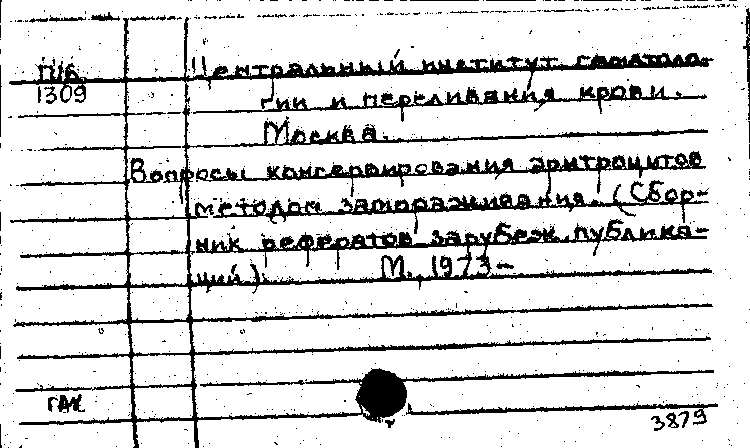 П16 Центральный институт гематоло-
1309 гии и переливания крови.
Москва.
Вопросы консервирования эритроцитов
методом замораживания. (Сбор-
ник рефератов зарубеж. публика-
ций). М., 1973-
ГАК
3879